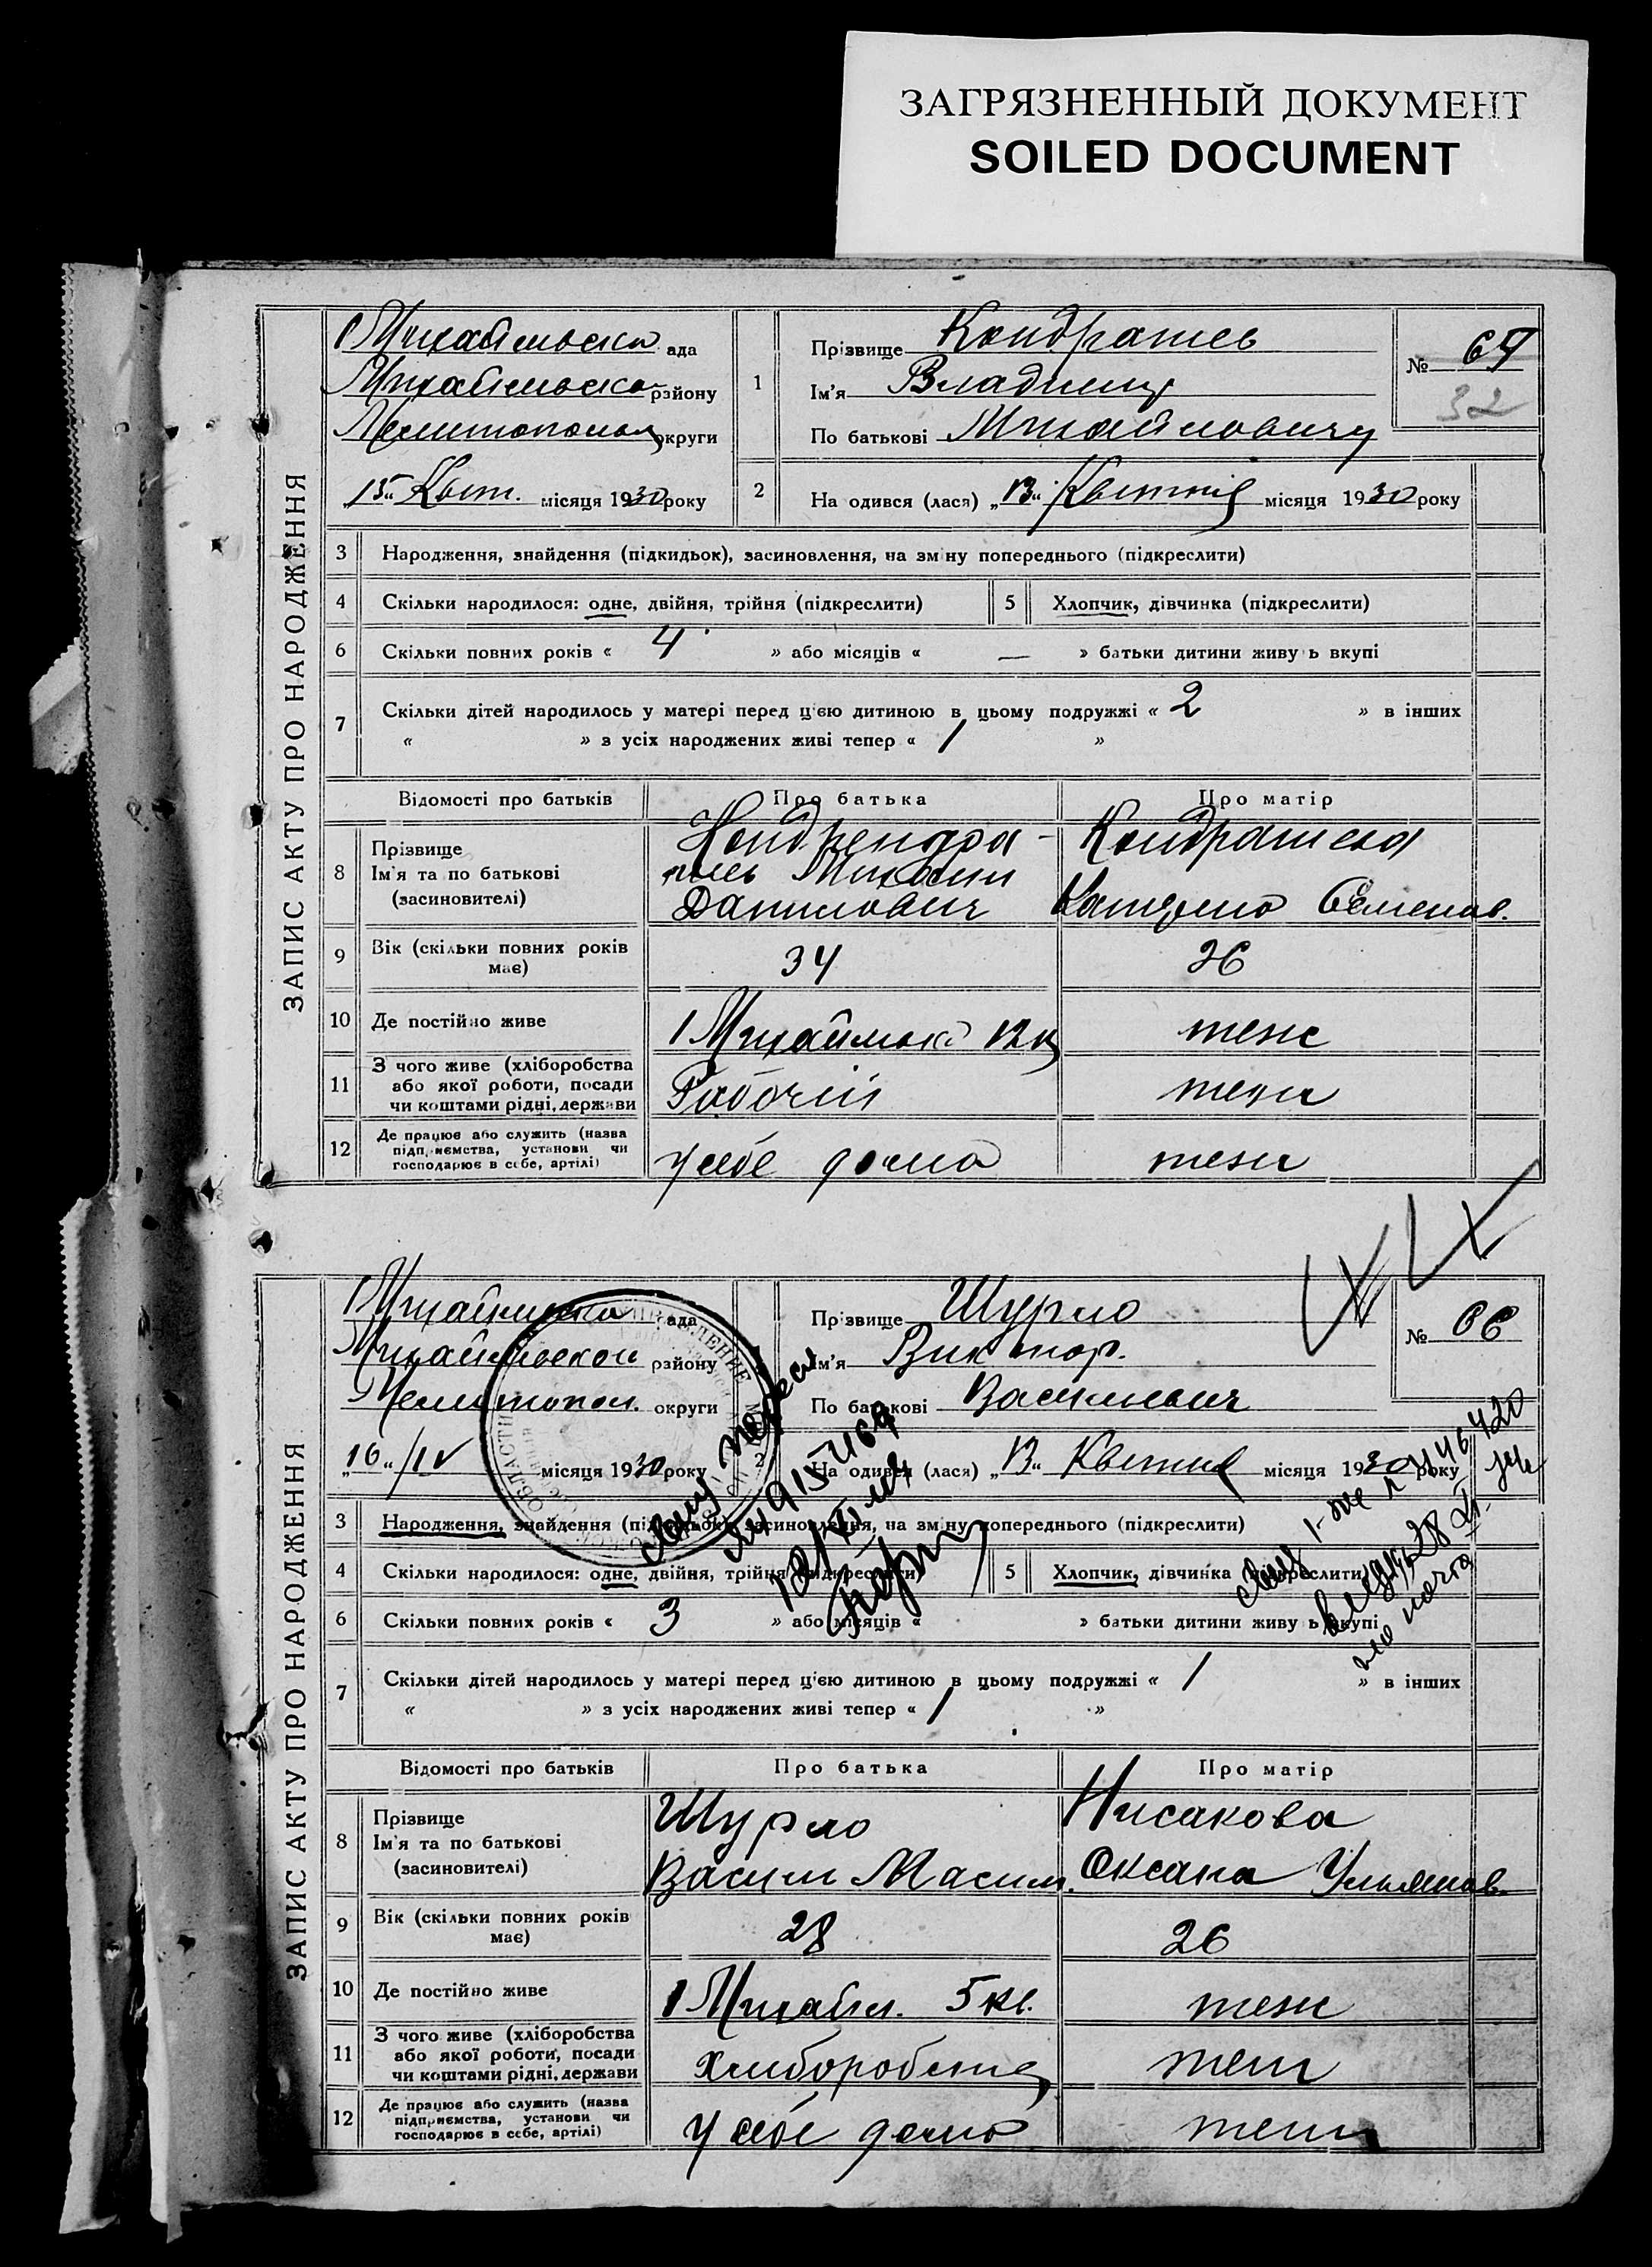 ЗАГРЯЗНЕННЫЙ ДОКУМЕНТ
SOILED DOCUMENT
ЗАПИС АКТУ ПРО НАРОДЖЕННЯ
1 Михайлівська ада
Михайлівсько району
Мелитополь округи
„15“ Квіт. місяця 1930 року
1
Прізвище Кондратев
Ім'я Владимир
По батькові Михайловичу
№ 
32
2
На одився (лася) „13“ Квітня місяця 1930 року
3 Народження, знайдення (підкидьок), засиновлення, на зм ну попереднього (підкреслити)
4 Скільки народилося: одне, двійня, трійня (підкреслити) 5 Хлопчик, дівчинка (підкреслити)
6 Скільки повних років « 4 » або місяців « — » батьки дитини живу ь вкупі
7 Скільки дітей народилось у матері перед ц'єю дитиною в цьому подружжі « 2 » в інших
« » з усіх народжених живі тепер « 1 »
Відомості про батьків Про батька Про матір
8 Прізвище
Ім'я та по батькові
(засновителі)
Михаил
Данилович
Кондратева
Семенов.
9 Вік (скільки повних років
має) 34 26
10 Де постійно живе 1 Михайлівка 12 кв теж
11 З чого живе (хліборобства
або якої роботи, посади
чи коштами рідні, держави Рабочій теж
12 Де працює або служить (назва
підприємства, установи чи
господарює в себе, артілі) у себе дома теж
ЗАПИС АКТУ ПРО НАРОДЖЕННЯ
1 Михайлівська ада
Михайлівської району
Мелитопол. округи
„16“ /IV місяця 1930 року
Прізвище Шурло
Ім'я Виктор.
По батькові Васильевич
№ 66
2
На одився (лася) „13“ Квітня місяця 1930 року
3 Народження, знайдення (підкидьок), засиновлення, на зм ну попереднього (підкреслити)
4 Скільки народилося: одне, двійня, трійня (підкреслити) 5 Хлопчик, дівчинка (підкреслити)
6 Скільки повних років « 3 » або місяців « » батьки дитини живу ь вкупі
7 Скільки дітей народилось у матері перед ц'єю дитиною в цьому подружжі « 1 » в інших
« » з усіх народжених живі тепер « 1 »
Відомості про батьків Про батька Про матір
8 Прізвище
Ім'я та по батькові
(засиновителі)
Шурло
Васил Масим.
Нисакова
Оксана Ульянов.
9 Вік (скільки повних років
має) 28 26
10 Де постійно живе 1 Михайл. 5 кв. теж
11 З чого живе (хліборобства
або якої роботи, посади
чи коштами рідні, держави Хліборобства теж
12 Де працює або служить (назва
підприємства, установи чи
господарює в себе, артілі) у себе дома теж